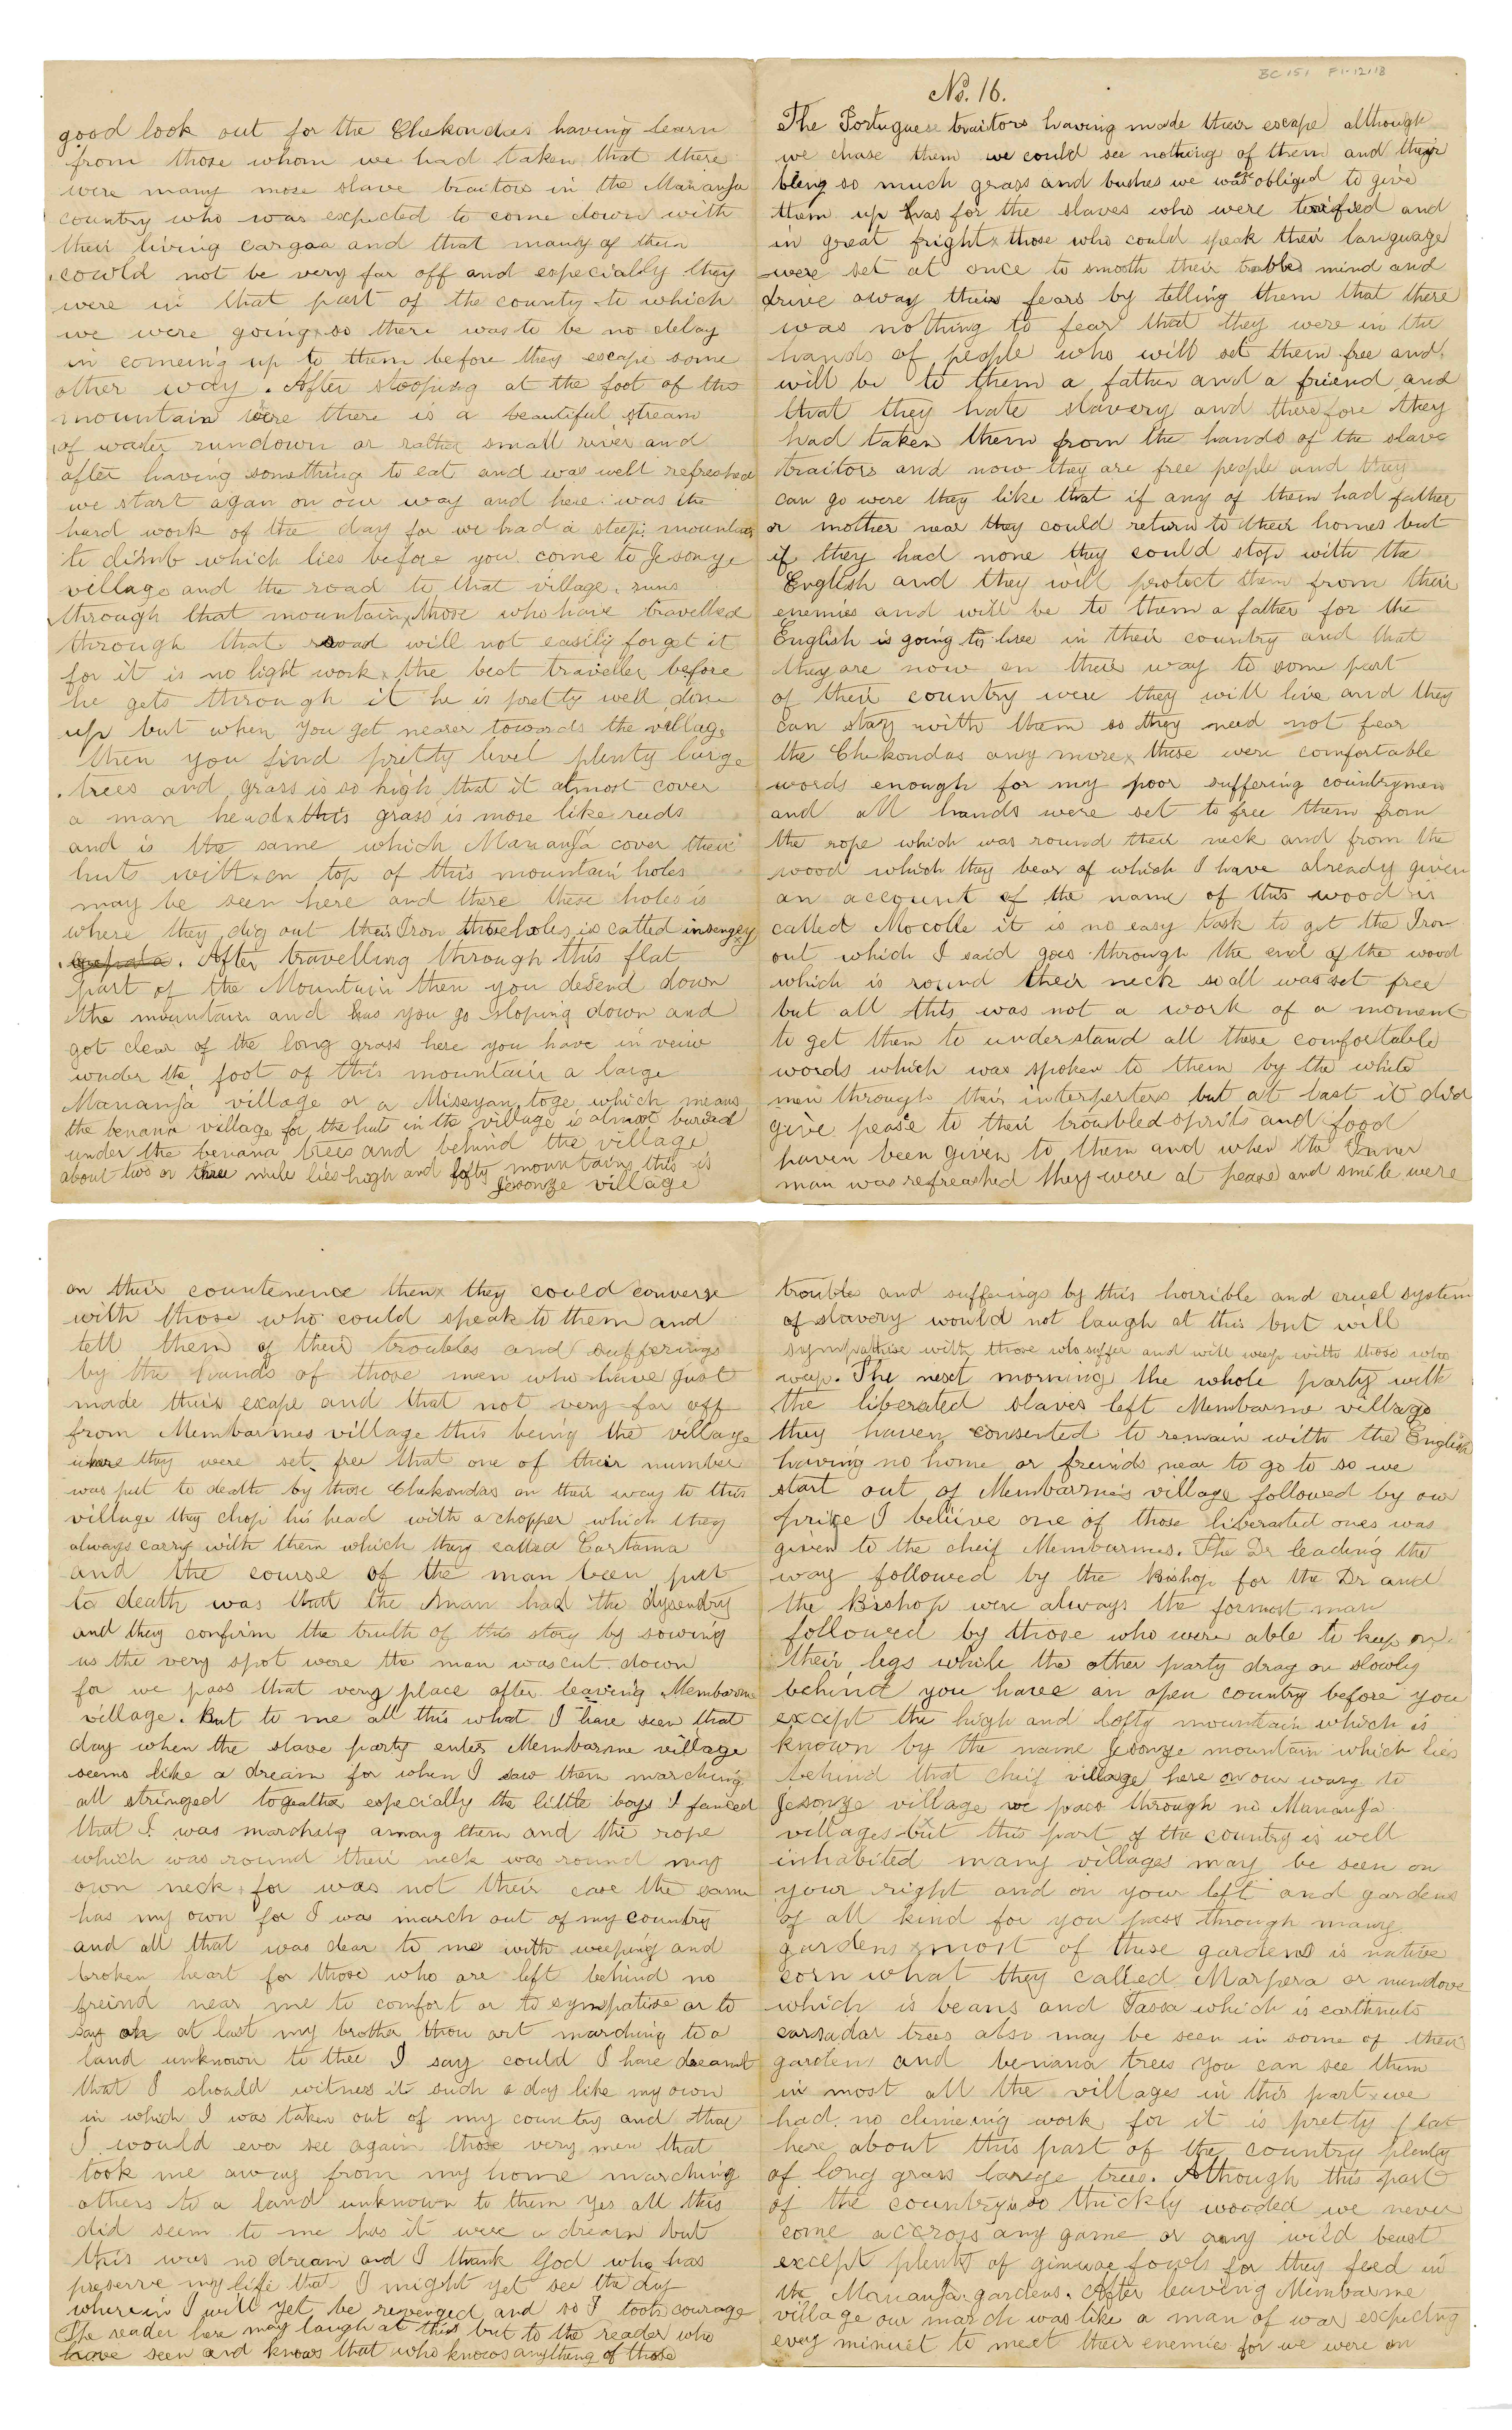 BC 151 F1-12/13
No. 16.
The Portuguese traitors having made their escape although
we chase them we could see nothing of them and their
bieng so much grass and bushes we was obliged to give
them up has for the slaves who were terrified and
in great fright x those who could speak their language
were set at once to smooth their trouble mind and
drive away their fears by telling them that there
was nothing to fear that they were in the
hands of people who will set them free and
will be to them a father and a friend and
that they hate slavery and therefore they
had taken them from the hands of the slave
traitors and now they are free people and they
can go were they like that if any of them had father
or mother near they could return to their homes but
if they had none they could stop with the
English and they will protect them from their
enemies and will be to them a father for the
English is going to live in their country and that
they are now on their way to some part
of their country were they will live and they
can stay with them so they need not fear
the Chekondas any more x these were comfortable
words enough for my poor suffering countrymen
and all hands were set to free them from
the rope which was round their neck and from the
wood which they bear of which I have already given
an account of the name of this wood is
called Mocolle it is no easy task to get the Iron
out which I said goes through the end of the wood
which is round their neck so all was set free
but all this was not a work of a moment
to get them to understand all these comfortable
words which was spoken to them by the white
men through their interperters but at last it did
give pease to their troubled sprits and food
haven been given to them and when the Inner
man was refreashed they were at pease and smile were
on their countenence then x they could converse
with those who could speak to them and
tell them of their troubles and sufferings
by the hands of those men who have just
made their excape and that not very far off
from Membarmes village this being the village
where they were set free that one of their number
was put to death by those Chekondas on their way to this
village they chop his head with a chopper which they
always carry with them which they called Cartama
and the course of the man been put
to death was that the man had the dysendry
and they confirm the truth of this story by sowing
us the very spot were the man was cut down
for we pass that very place after leaving Membarme
village. But to me all this what I have seen that
day when the slave party enter Membarme village
seems like a dream for when I saw them marching
all stringed togeather especially the little boys I fanced
that I was marching among them and the rope
which was round their neck was round my
own neck, for was not their case the same
has my own for I was march out of my country
and all that was dear to me with weeping and
broken heart for those who are left behind no
freind near me to comfort or to sympatise or to
say oh at last my brother thou art marching to a
land unknown to thee I say could I have dreamt
that I should witness it such a day like my own
in which I was taken out of my country and that
I would ever see again those very men that
took me away from my home marching
others to a land unknown to them yes all this
did seem to me has it were a dream but
this was no dream and I thank God who has
preserve my life that I might yet see the day
wherein I will yet be revenged and so I took courage
The reader here may laugh at this but to the reader who
have seen and knows that who knows anything of those
troubles and sufferings by this horrible and cruel system
of slavery would not laugh at this but will
sympathise with those who suffer and will weep with those who
weep. The next morning the whole party with
the liberated slaves left Membarme village
they haven consented to remain with the English
having no home or freinds near to go to so we
start out of Membarme's village followed by our
prize I beliive one of those liberated ones was
given to the cheif Membarmes. The Dr leading the
way followed by the Bishop for the Dr and
the Bishop were always the formost man
followed by those who were able to keep on
their legs while the other party drag on slowly
behind you have an open country before you
except the high and lofty mountain which is
known by the name Jesonze mountain which lies
behind that cheif village here on our way to
Jesonze village we pass through no Mananja
villages but this part of the country is well
inhabited many villages may be seen on
your right and on your left and gardens
of all kind for you pass through many
gardens x most of these gardens is native
corn what they called Marpera or nundove
which is beans and Tassa which is earthnuts
carsadar trees also may be seen in some of their
gardens and benana trees you can see them
in most all the villages in this part x we
had no climeing work for it is pretty flat
here about this part of the country plenty
of long grass large trees. Although this part
of the country is so thickly wooded we never
come accross any game or any wild beast
except plenty of ginuae fowls for they feed in
the Mananja gardens. After leaving Membarme
village our march was like a man of war expecting
every minuet to meet their enemies for we were on
good look out for the Chekondas having learn
from those whom we had taken that there
were many more slave traitors in the Mananja
country who was expected to come down with
their living cargoa and that many of them
could not be very far off and especially they
were in that part of the county to which
we were going x so there was to be no delay
in comeing up to them before they escape some
other way. After stooping at the foot of the
mountain were there is a beautiful stream
of water rundown or rather small river and
after having something to eat and was well refreshed
we start agan on our way and here was the
hard work of the day for we had a steep mountain
to climb which lies before you come to Jesonze
village and the road to that village runs
through that mountain x those who have travelled
through that road will not easily forget it
for it is no light work x the best traveller before
he gets through it he is pretty well done
up but when you get nearer towards the village
then you find pritty level plenty large
trees and grass is so high that it almost cover
a man head x this grass is more like reeds
and is the same which Mananja cover their
huts with x on top of this mountain holes
may be seen here and there these holes is
where they dig out their Iron these holes is called insengey
. After travelling through this flat
part of the Mountain then you desend down
the mountain and has you go sloping down and
got clear of the long grass here you have in veiw
under the foot of this mountain a large
Mananja village or a Miseyan toge which means
the benana village for the huts in the village is almost buried
under the benana trees and behind the village
about two or three mile lies high and lofty mountains this is
Jesonze village